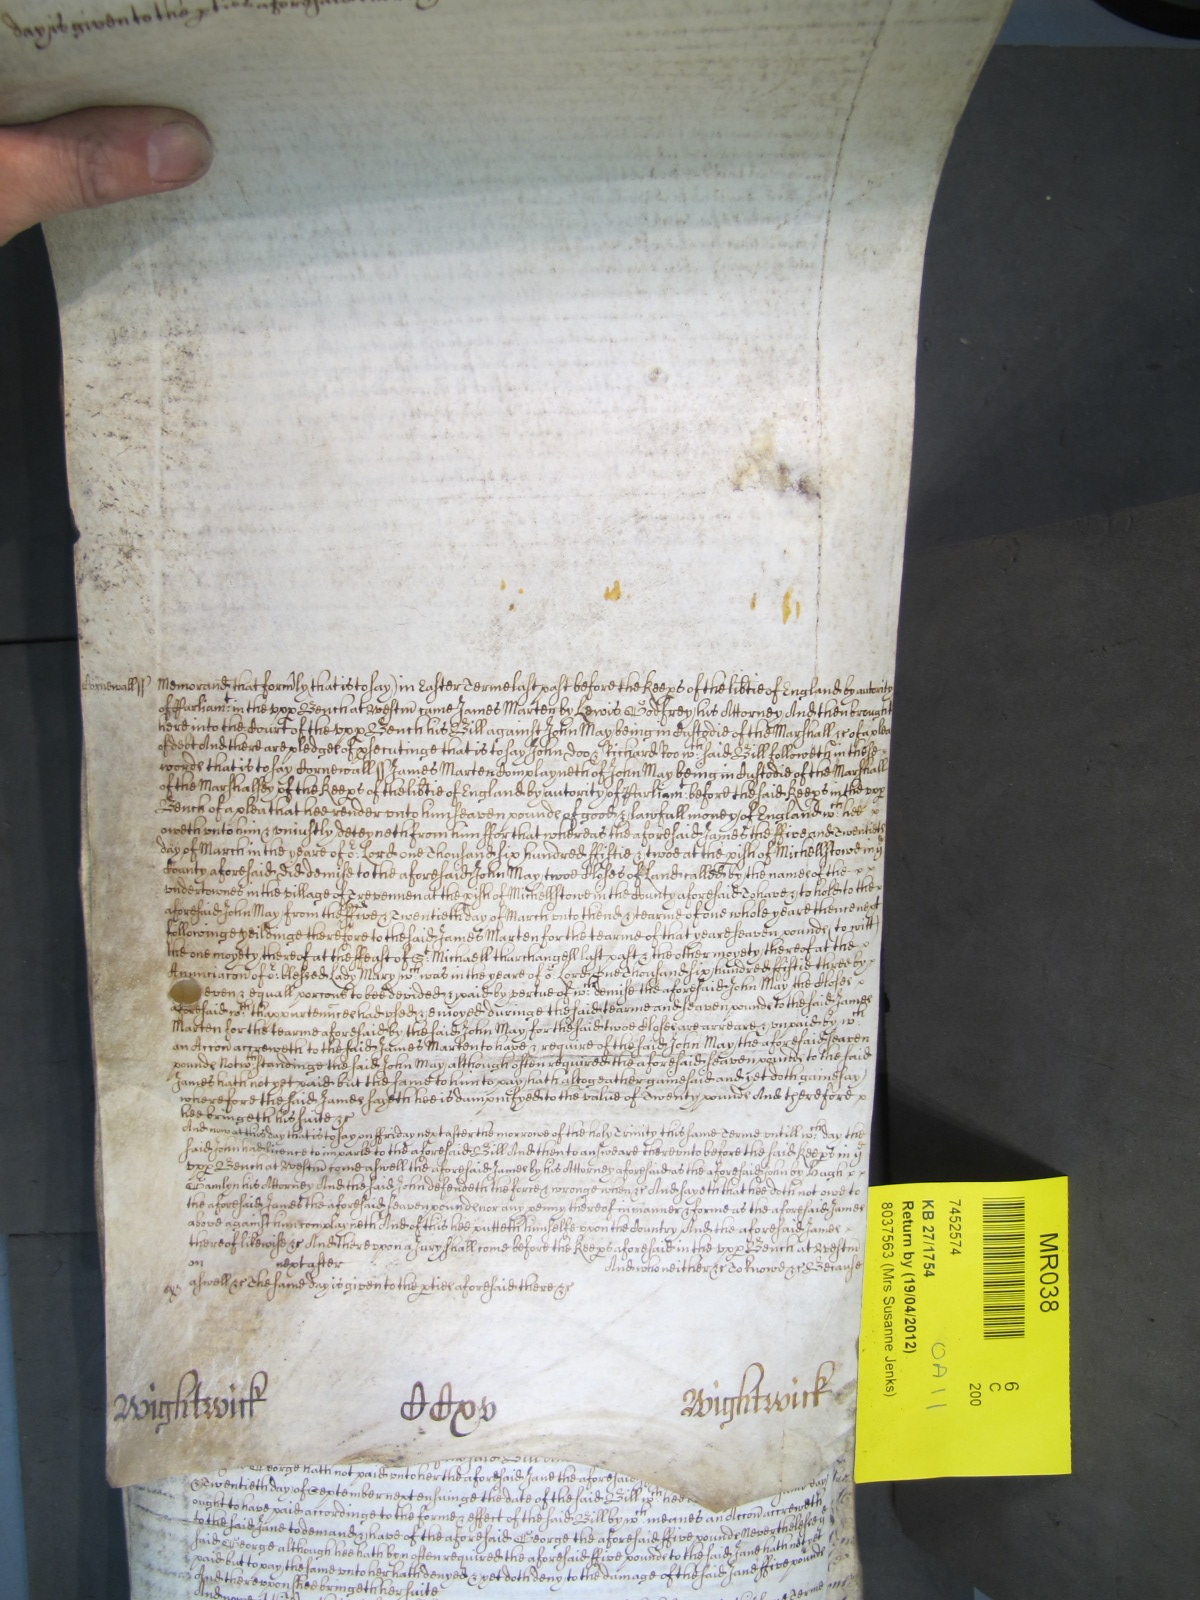 day is given to the pties aforesaid
Cornewall ss Memorand that formly that is to say in Easter Terme last past before the Keeps of the libtie of England by autority
of Parliamt in the vpp Bench at Westm came James Marten by Lewis Godfrey his Attorney And then brought
here into the Court of the vpp Bench his Bill against John May being in Custodie of the Marshall &c of a plea
of debt And there are pledges of psecutinge that is to say John Doo & Richard Roo wch said Bill followeth in these
words that is to say Cornewall ss James Marten Complayneth of John May being in Custodie of the Marshall
of the Marshalsey of the Keeps of the libtie of England by autority of Parliamt before the said Keeps in the vpp
Bench of a plea that hee render vnto him seaven pounds of good & lawfull money of England wch hee
oweth vnto him & vniustly deteyneth from him ffor that whereas the aforesaid James the ffive and Twentieth
day of March in the yeare of or Lord one Thousand six hundred ffiftie & twoe at the pish of Michellstowe in ye
County aforesaid did demise to the aforesaid John May twoe Closes of Land called by the names of the
vndertownes in the village of Trevenn at the pish of Michellstowe in the County aforesaid To have & to hold to the
aforesaid John May from the ffive & Twentieth day of March vnto thend & tearme of one whole yeare thence next
followinge yeildinge therefore to the said James Marten for the tearme of that yeare seaven pounds to witt
the one moyety thereof at the ffeast of St Michaell tharchangell last past & the other moyety thereof at the
Anunciacon of or blessed Lady Mary wch was in the yeare of or Lord One Thousand six hundred ffiftie three by
even & equall porcons to bee devided & paid by vertue of wch demise the aforesaid John May the Closes
aforesaid wth thappurtennces had vsed & enioyed duringe the said tearme and seaven pounds to the said James
Marten for the tearme aforesaid by the said John May for the said twoe Closes are arreare & vnpaid by wch
an Accon accreweth to the said James Marten to have & require of the said John May the aforesaid seaven
pounds Notwthstandinge the said John May although often required the aforesaid seaven pounds to the said
James hath not yet paid But the same to him to pay hath altogeather gainesaid and yet doth gainesay
wherefore the said James sayeth hee is dampnifyed to the value of Twenty pounds And therefore
hee bringeth his suite &c
And now at this day that is to say on ffriday next after the morrowe of the holy Trinity this same Terme vntill wch day the
said John had licence to imparle to the aforesaid Bill And then to answeare therevnto before the said Keeps in ye
vpp Bench at Westm come aswell the aforesaid James by his Attorney aforesaid as the aforesaid John by Hugh
Gamlyn his Attorney And the said John defendeth the force & wronge when &c And sayeth that hee doth not owe to
the aforesaid James the aforesaid seaven pounds nor any penny thereof in manner & forme as the aforesaid James
above against him complayneth And of this hee putteth himselfe vpon the Country And the aforesaid James
thereof likewise &c And therevpon a Jury shall come before the Keeps aforesaid in the vpp Bench at Westm
on next after And who neither &c To knowe &c Because
aswell &c The same day is given to the pties aforesaid there &c
Wightwick CCxv Wightwick
George hath not paid vnto her the aforesaid Jane the aforesaid
Twentieth day of September next ensuinge the date of the said Bill wch hee
ought to have paid accordinge to the forme & effect of the said Bill by wch meanes an Accon accreweth
to the said Jane to demand & have of the aforesaid George the aforesaid ffive pounds Neverthelesse ye
said George although hee hath byn often required the aforesaid ffive pounds to the said Jane hath not yet
paid but to pay the same vnto her hath denyed & yet doth deny to the damage of the said Jane ffive pounds
And therevpon shee bringeth her suite
MR038
6
C
200
7452574
KB 27/1754
Return by (19/04/2012)
8037563 (Mrs Susanne Jenks)